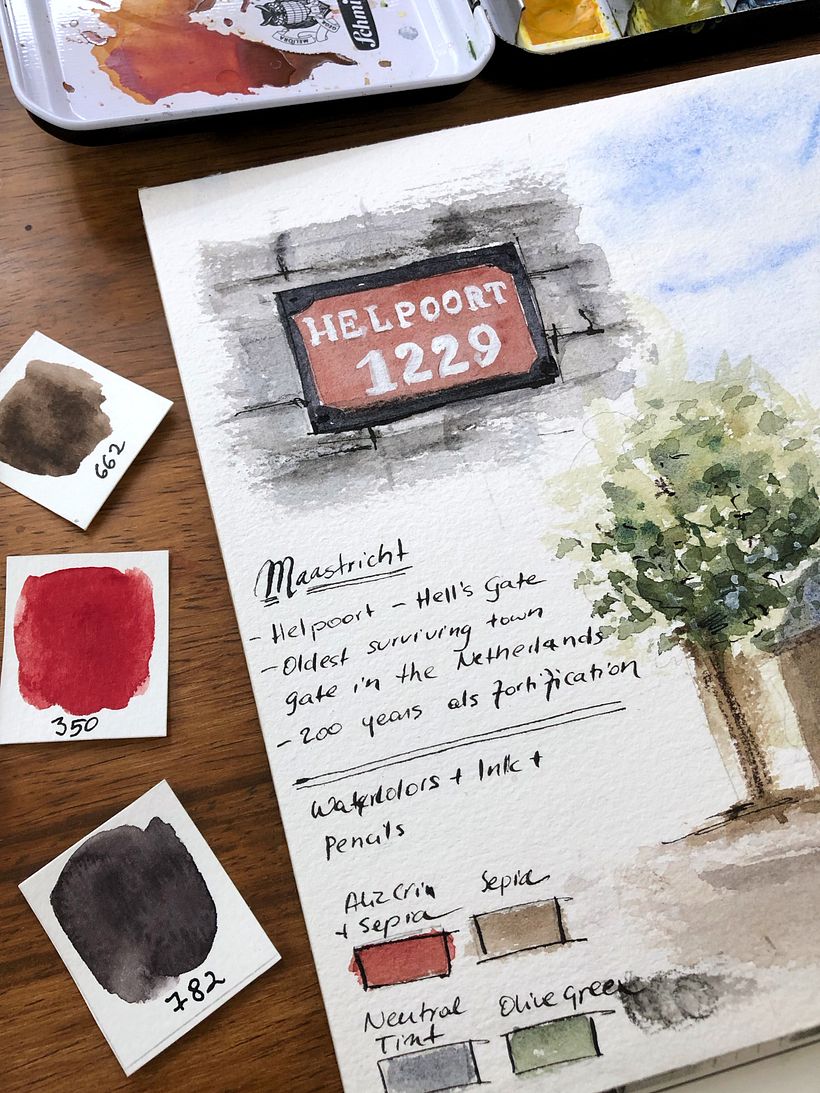 Schmi
MELIORA
HELPOORT
1229
662
350
782
Maastricht
- Helpoort - Hell's Gate
- Oldest surviving town
gate in the Netherlands
- 200 years als fortification
Watercolors + Ink +
Pencils
Aliz Crin
+ Sepia
Sepia
Neutral
Tint
Olive green